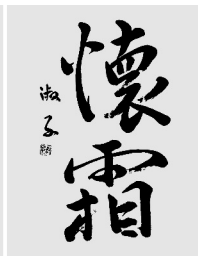 懷霜
淑子